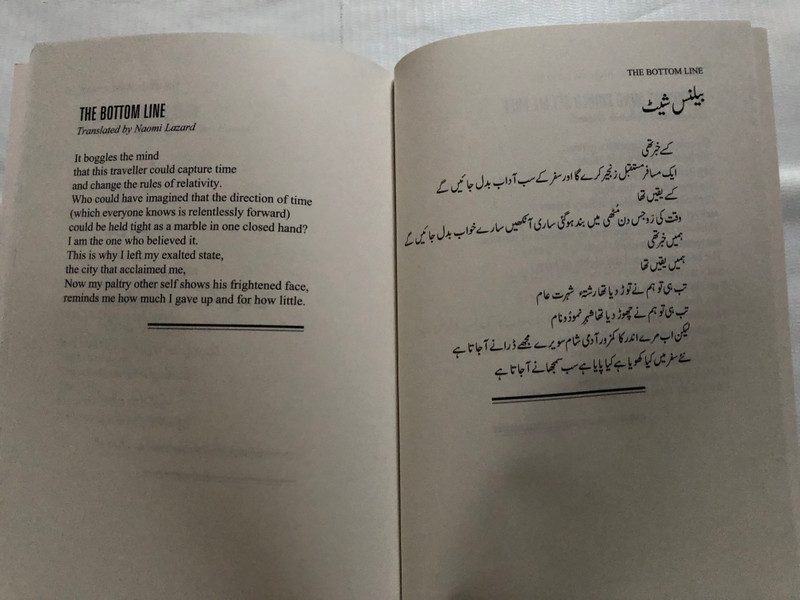 THE BOTTOM LINE
Translated by Naomi Lazard
It boggles the mind
that this traveller could capture time
and change the rules of relativity.
Who could have imagined that the direction of time
(which everyone knows is relentlessly forward)
could be held tight as a marble in one closed hand?
I am the one who believed it.
This is why I left my exalted state,
the city that acclaimed me,
Now my paltry other self shows his frightened face,
reminds me how much I gave up and for how little.
THE BOTTOM LINE
بیلنس شیٹ
کسے خبر تھی
ایک مسافر مستقبل زنجیر کرے گا اور سفر کے سب آداب بدل جائیں گے
کسے یقیں تھا
وقت کی رَو جس دن مُٹھی میں بند ہوگئی ساری آنکھیں سارے خواب بدل جائیں گے
ہمیں خبر تھی
ہمیں یقیں تھا
تب ہی تو ہم نے توڑ دیا تھا رشتۂ شہرت عام
تب ہی تو ہم نے چھوڑ دیا تھا شہرِ نمود و نام
لیکن اب مرے اندر کا کمزور آدمی شام سویرے مجھے ڈرانے آ جاتا ہے
نئے سفر میں کیا کھویا ہے کیا پایا ہے سب سمجھانے آ جاتا ہے